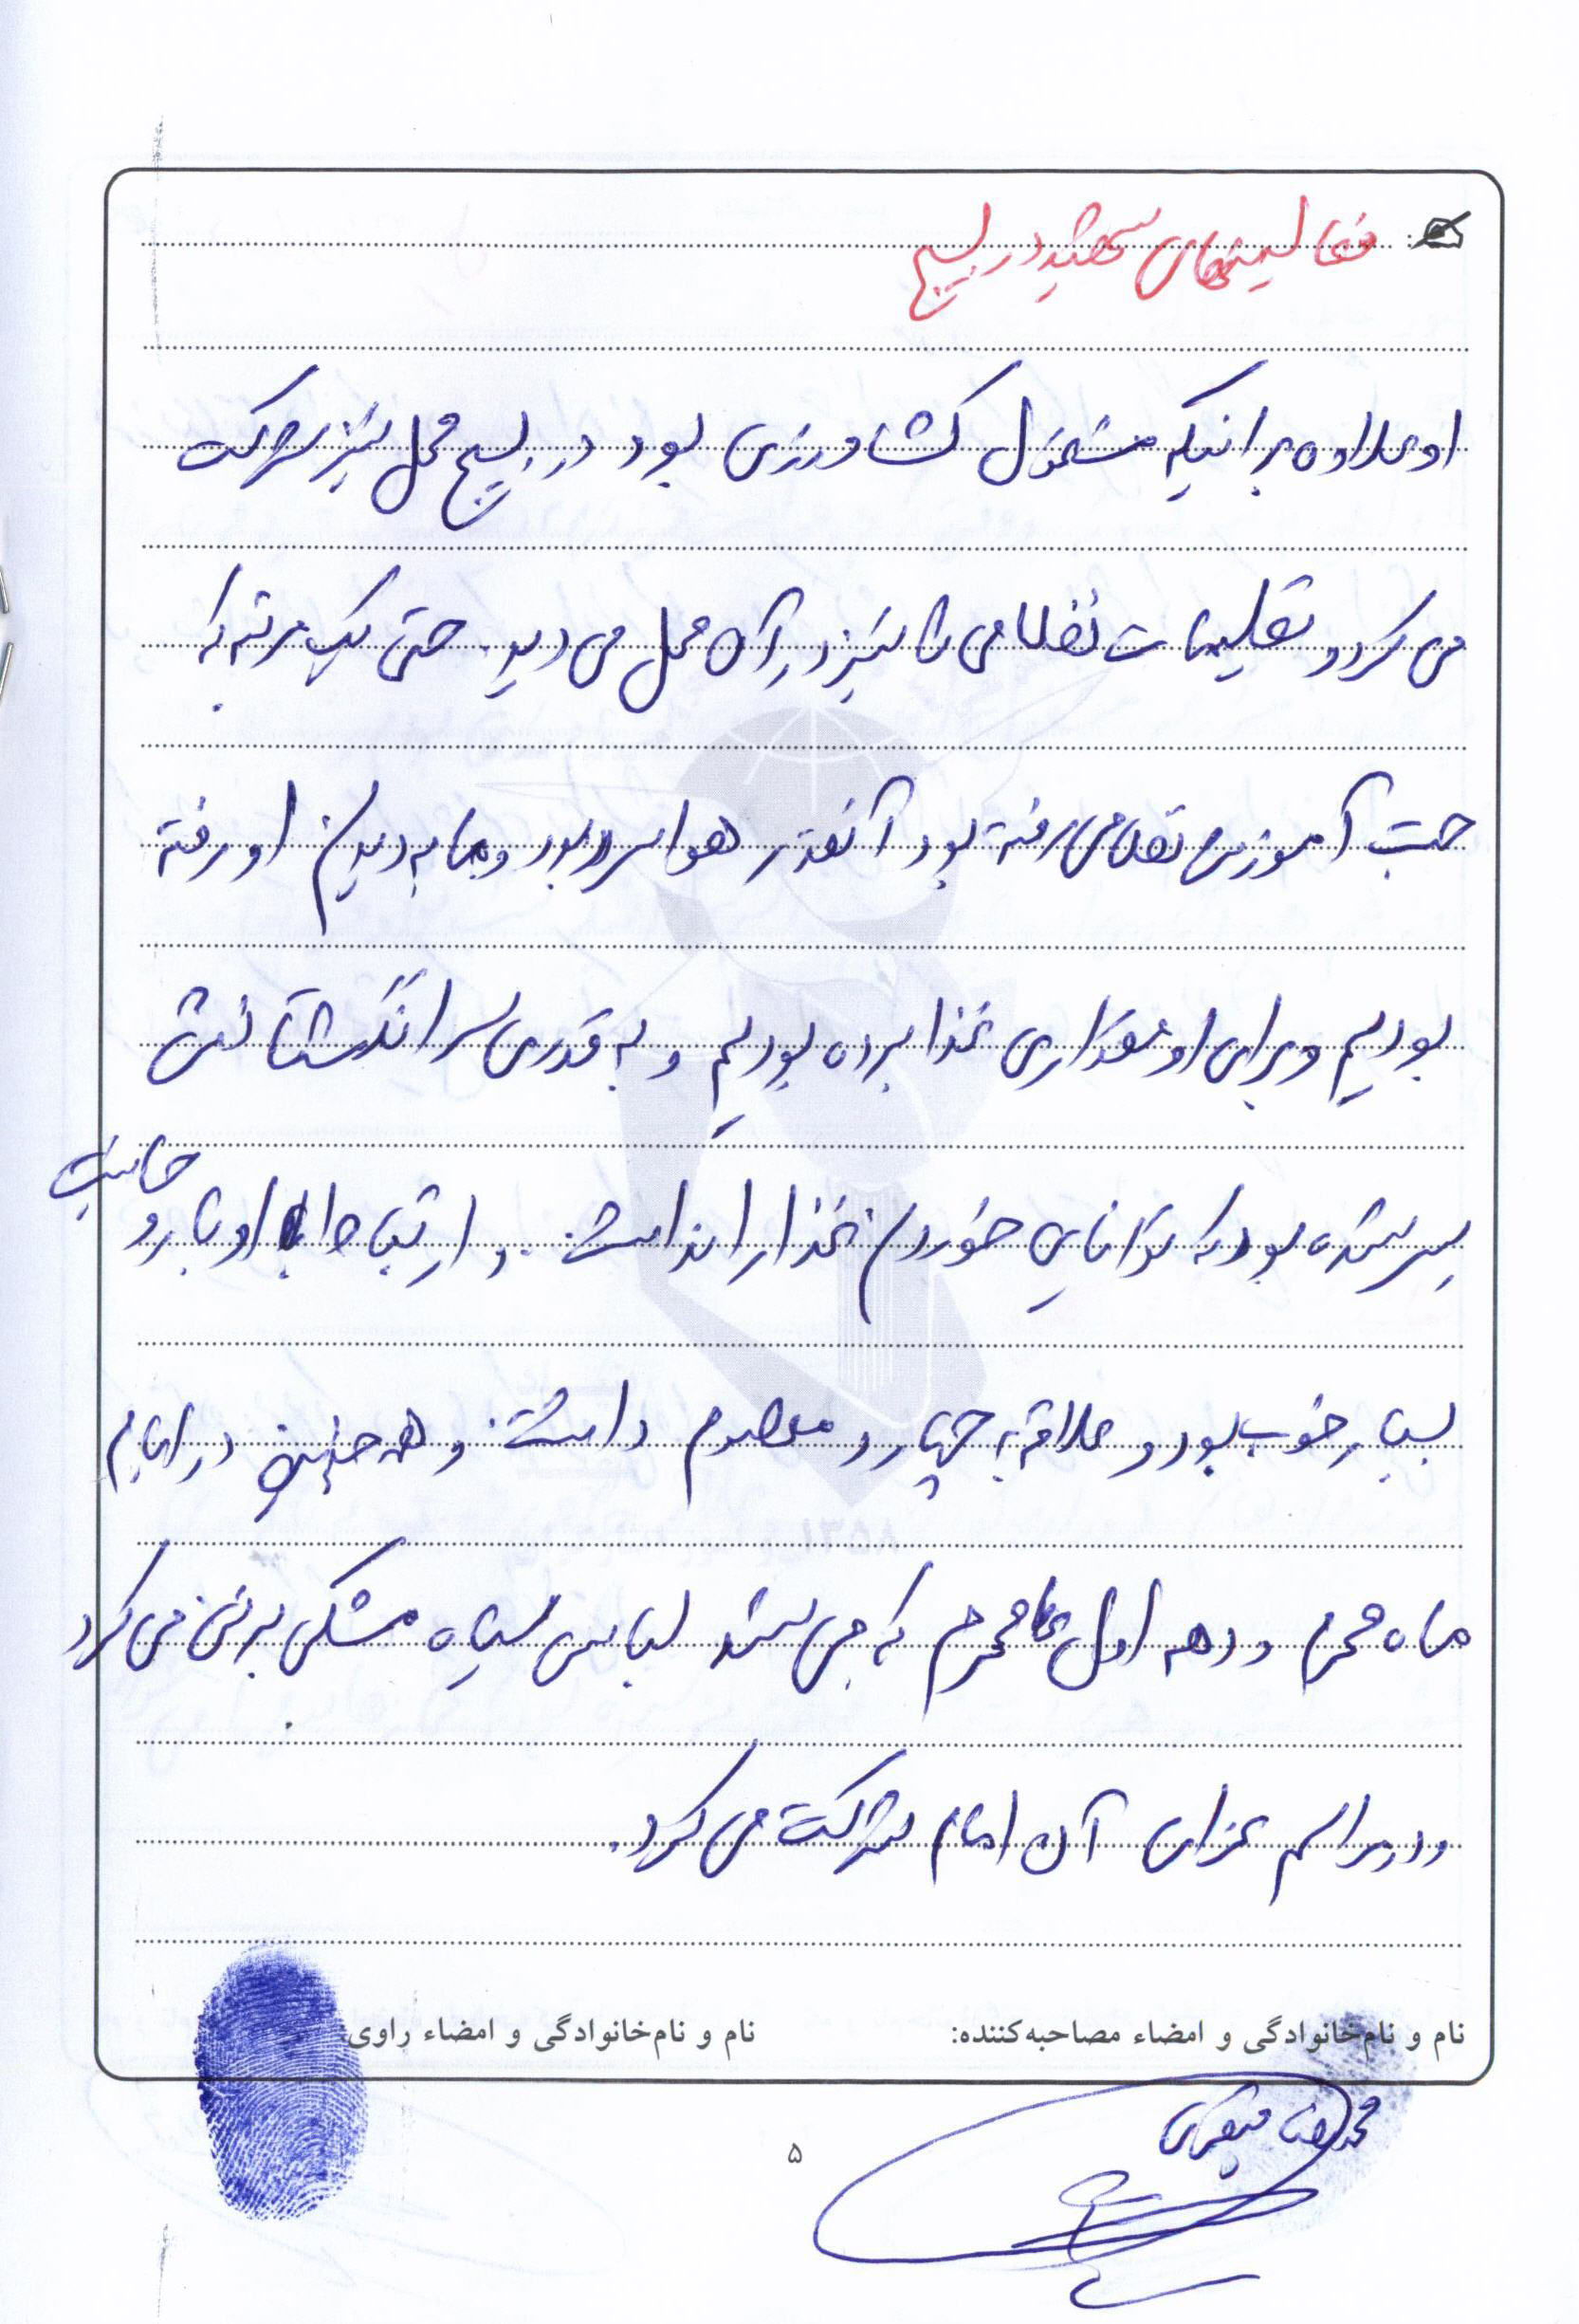 فعالیتهای شهید در بسیج
او علاوه بر اینکه مشغول کشاورزی بود در بسیج محل نیز شرکت
می کرد و تعلیمات نظامی را نیز در آن محل می دید. حتی یک مرتبه که
جهت آموزش نظامی رفته بود آنقدر هوا سرد بود و ما به دیدن او رفته
بودیم و برای او مقداری غذا برده بودیم و به قدری سر انگشتانش
سر شده بود که توانایی خوردن غذا را نداشت. و ارتباط او با روحانیت
بسیار خوب بود و علاقه به چهارده معصوم داشت و همچنین در ایام
ماه محرم و دهه اول محرم که می شد لباس سیاه مشکی بر تن می کرد
و در مراسم عزای آن امام شرکت می کرد.
نام و نام‌خانوادگی و امضاء مصاحبه‌کننده:
نام و نام‌خانوادگی و امضاء راوی
محمدرضا
۵